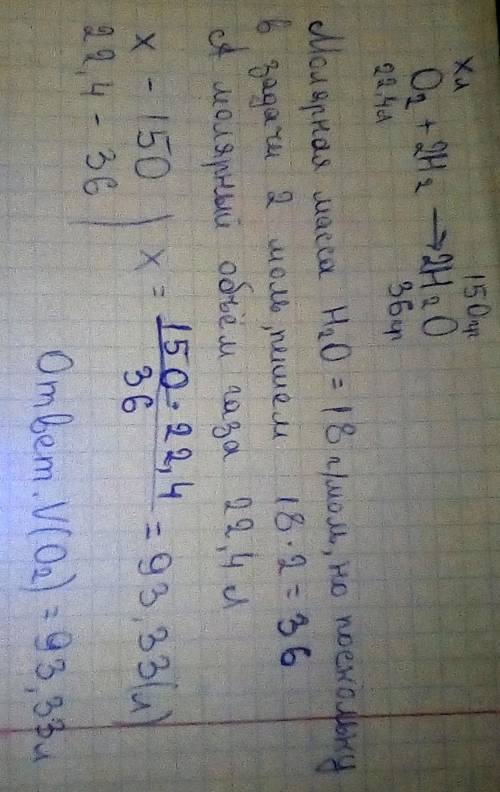 хл 150гр
O₂ + 2H₂ → 2H₂O
22,4л 36гр
Молярная масса H₂O = 18 г/мол, но поскольку
в задачи 2 моль, пишем 18·2 = 36
А молярный объём газа 22,4 л
x – 150 | x = 150·22,4 / 36 = 93,33(л)
22,4 – 36
Ответ. V(O₂) = 93,33л